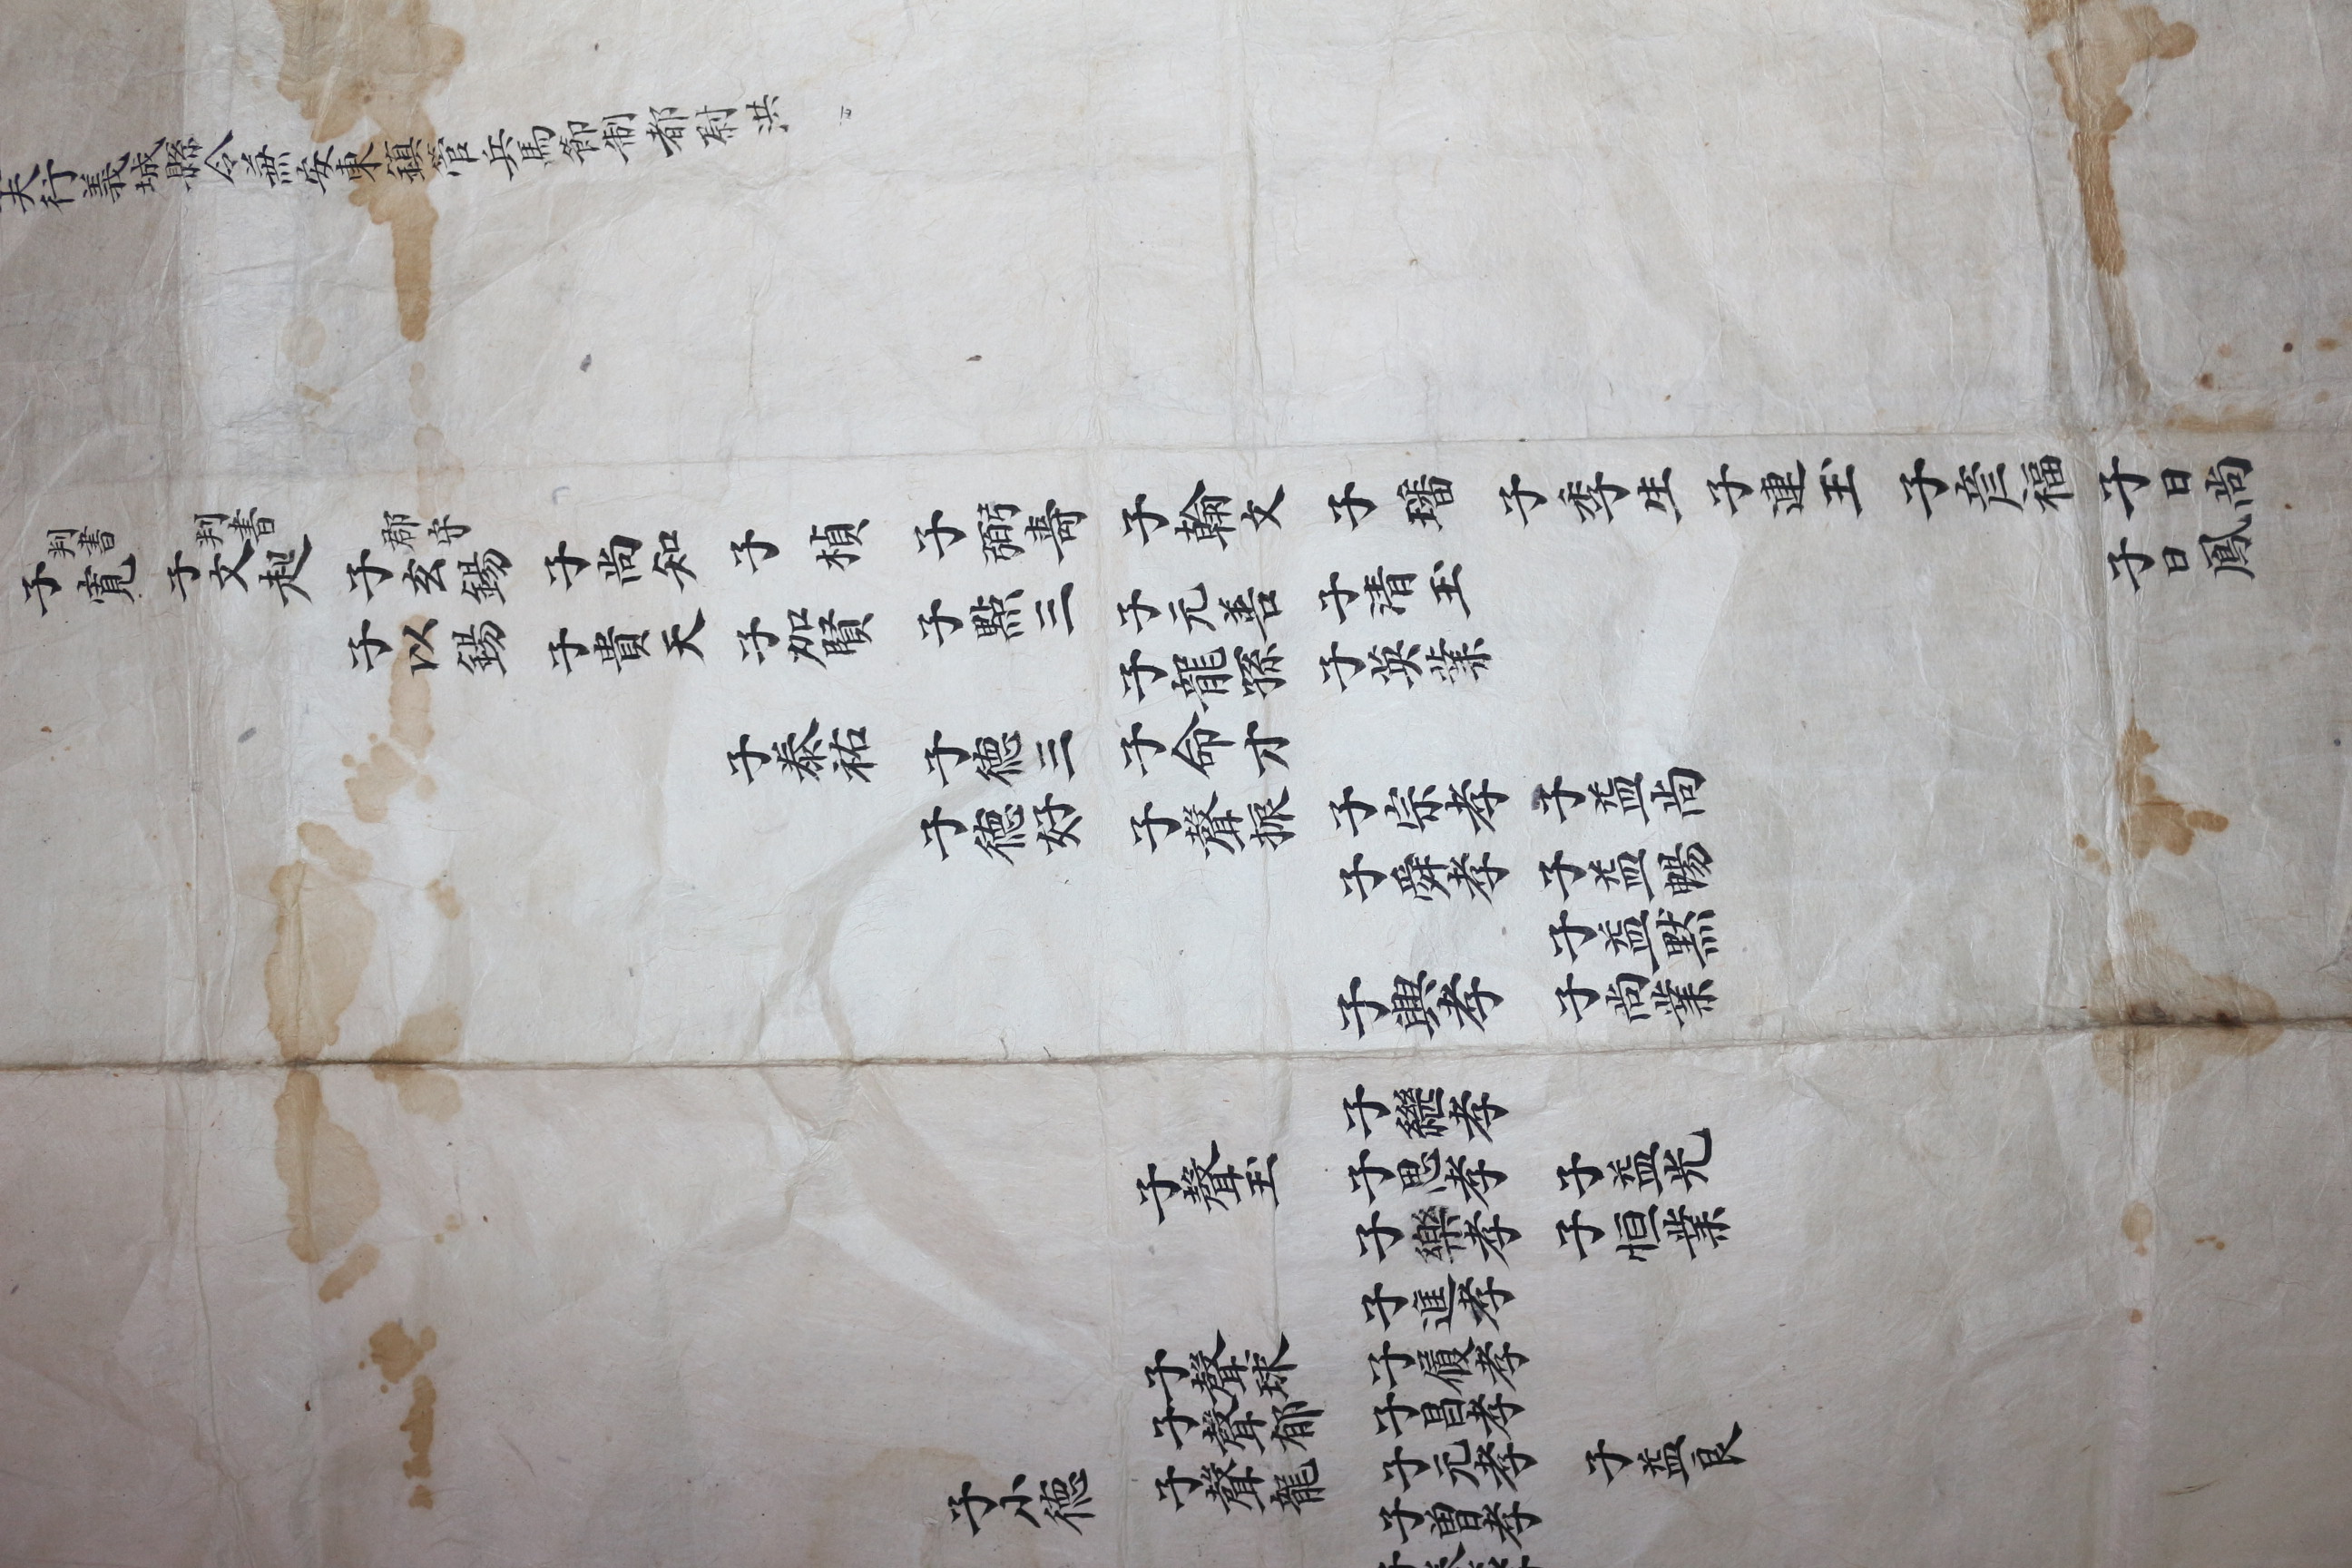 夫行義城縣令兼安東鎭管兵馬節制都尉洪
判書 判書 郡守
子寬 子文起 子玄錫 子尚知 子楨 子弼壽 子翰文 子璠 子季生 子連玉 子彦福 子日尚
子日鳳
子以錫 子貴天 子加賢 子點三 子元善 子清玉
子龍孫 子英業
子泰祐 子德三 子命才
子德好 子聲振 子宗孝 子益尚
子舜孝 子益暢
子益默
子興孝 子尚業
子繼孝
子聲玉 子思孝 子益光
子樂孝 子恒業
子進孝
子聲球 子履孝
子聲郁 子昌孝
子小德 子聲龍 子元孝 子益良
子曽孝